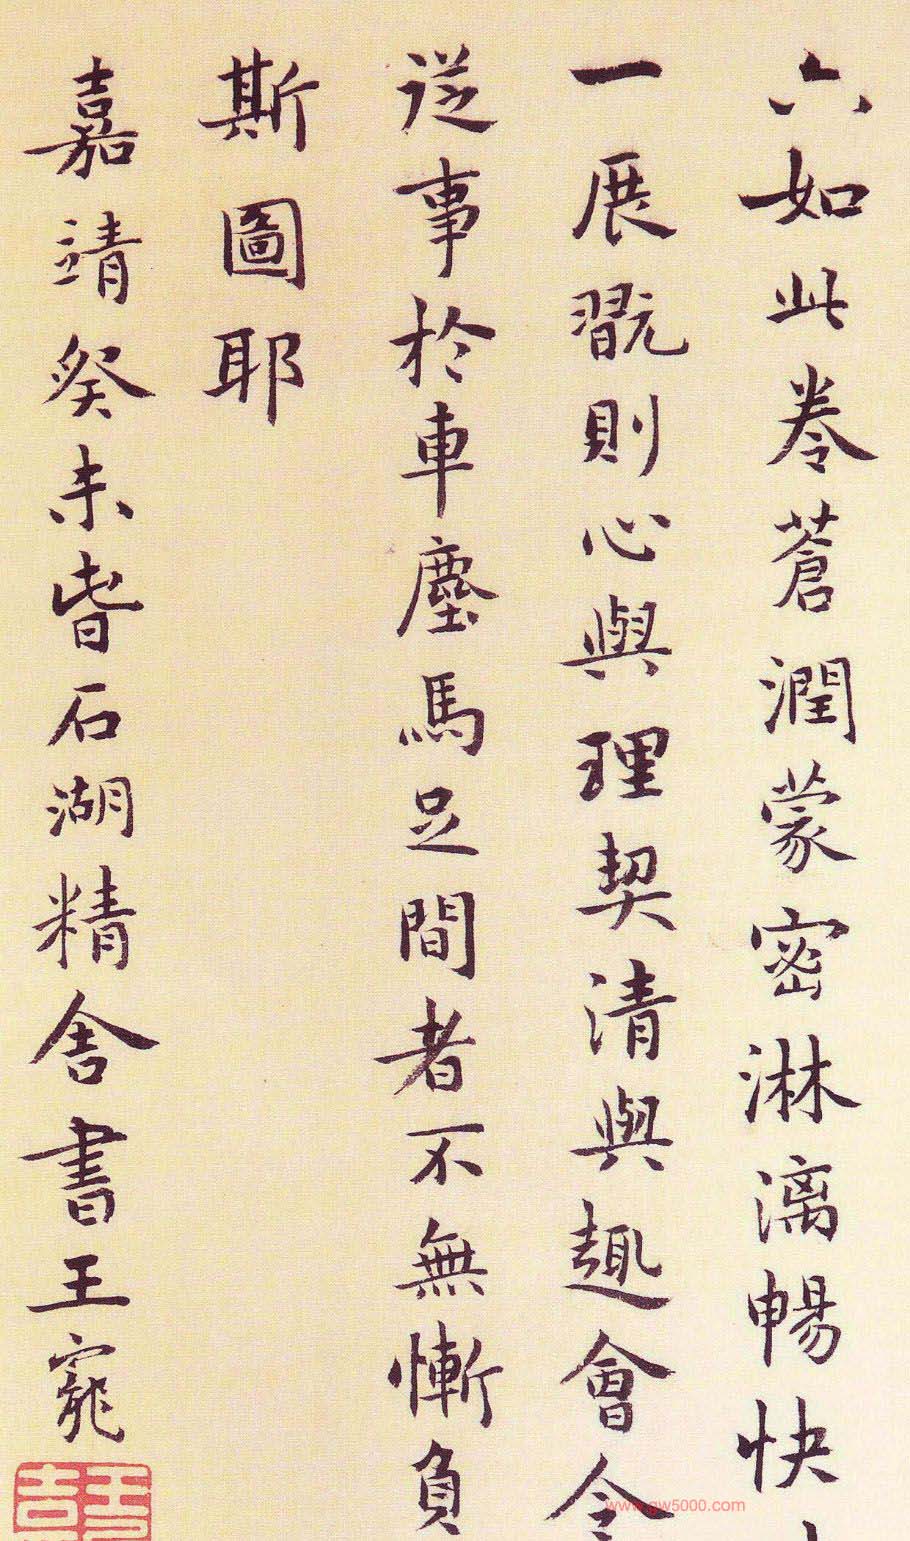 六如此卷蒼潤蒙密淋漓暢快
一展翫則心與理契清與趣會令
從事於車塵馬足間者不無慚負
斯圖耶
嘉靖癸未皆石湖精舍書王寵
www.gw5000.com